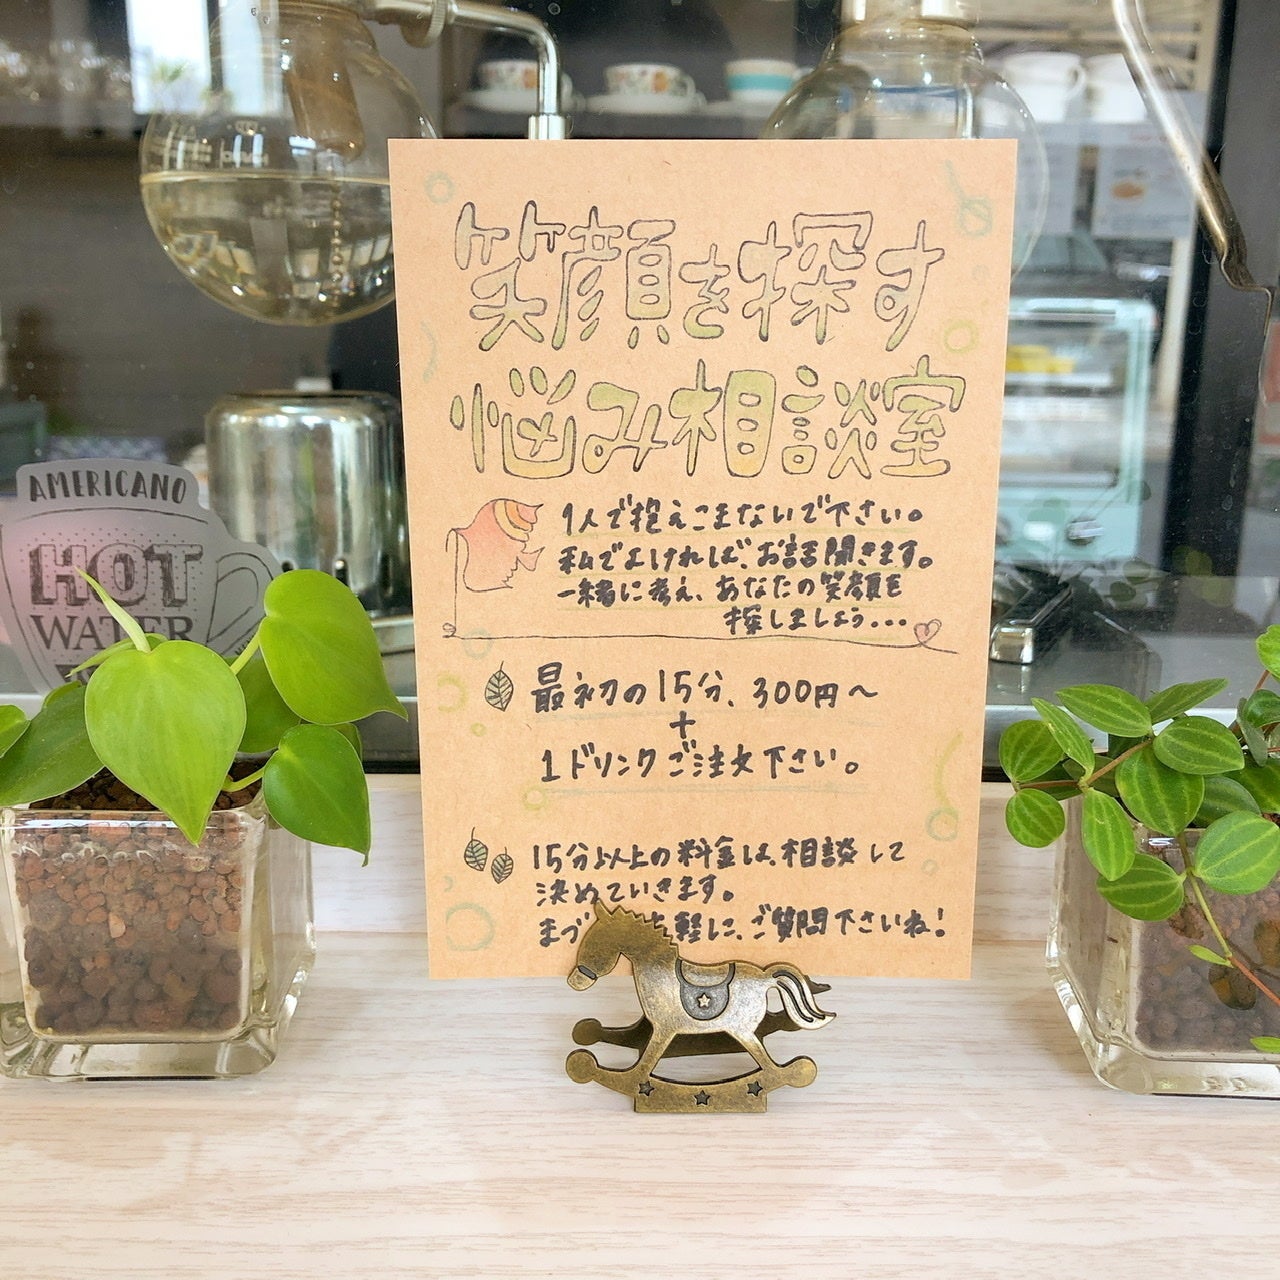 笑顔を探す
悩み相談室
1人で抱えこまないで下さい。
私でよければ、お話聞きます。
一緒に考え、あなたの笑顔を
探しましょう...
最初の15分、300円〜
+
1ドリンクご注文下さい。
15分以上の料金は、相談して
決めていきます。
まづ
軽に、ご質問下さいね!
AMERICANO
HOT
WATER